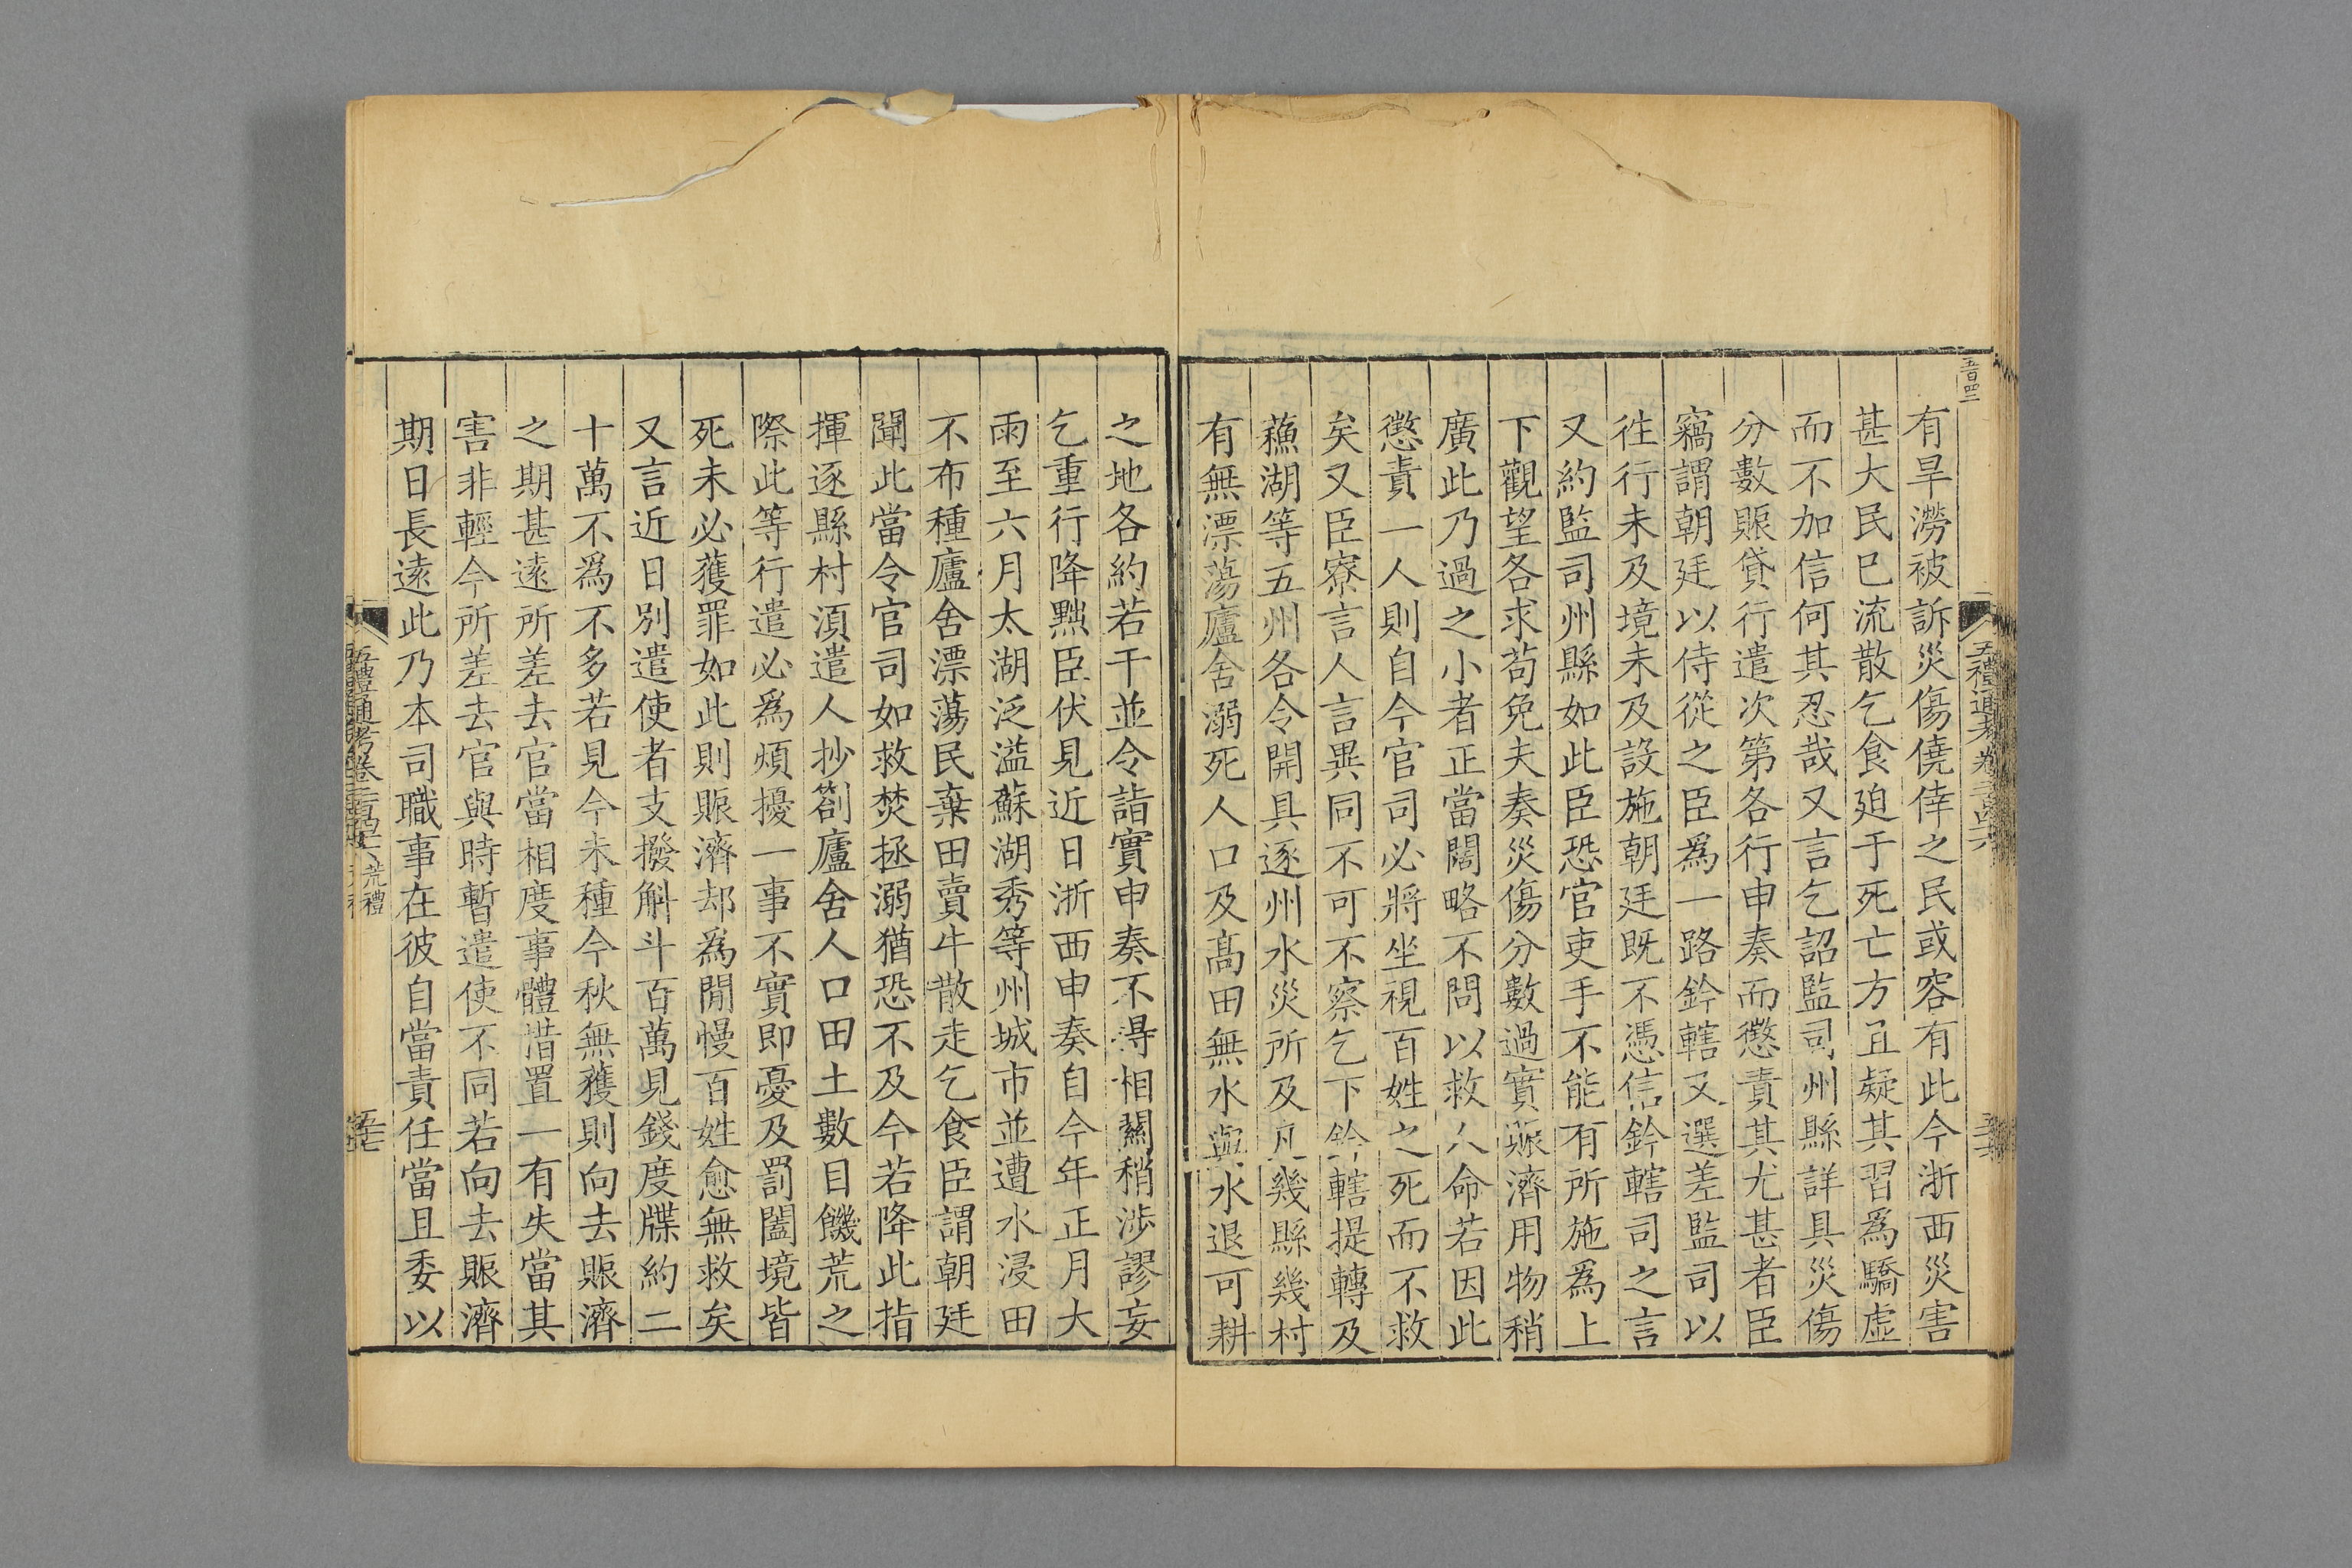 有旱澇被訴災傷僥倖之民或容有此今浙西災害
甚大民已流散乞食廹于死亡方且疑其習爲驕虛
而不加信何其忍哉又言乞詔監司州縣詳具災傷
分數賑貸行遣次第各行申奏而懲責其尤甚者臣
竊謂朝廷以侍從之臣爲一路鈐轄又選差監司以
徃行未及境未及設施朝廷既不憑信鈐轄司之言
又約監司州縣如此臣恐官吏手不能有所施爲上
下觀望各求苟免夫奏災傷分數過實賑濟用物稍
廣此乃過之小者正當闊略不問以救人命若因此
懲責一人則自今官司必將坐視百姓之死而不救
矣又臣寮言人言異同不可不察乞下鈐轄提轉及
蘓湖等五州各令開具逐州水災所及凡幾縣幾村
有無漂蕩廬舍溺死人口及髙田無水與水退可耕
之地各約若干並令詣實申奏不得相關稍涉謬妄
乞重行降黜臣伏見近日浙西申奏自今年正月大
雨至六月太湖泛溢蘇湖秀等州城市並遭水浸田
不布種廬舍漂蕩民棄田賣牛散走乞食臣謂朝廷
聞此當令官司如救焚拯溺猶恐不及今若降此指
揮逐縣村湏遣人抄劄廬舍人口田土數目饑荒之
際此等行遣必爲煩擾一事不實即憂及罰闔境皆
死未必獲罪如此則賑濟却爲閒慢百姓愈無救矣
又言近日別遣使者支撥斛斗百萬見錢度牒約二
十萬不爲不多若見今未種今秋無穫則向去賑濟
之期甚遠所差去官當相度事體措置一有失當其
害非輕今所差去官與時暫遣使不同若向去賑濟
期日長遠此乃本司職事在彼自當責任當且委以
五禮通考卷二百四十六
荒禮